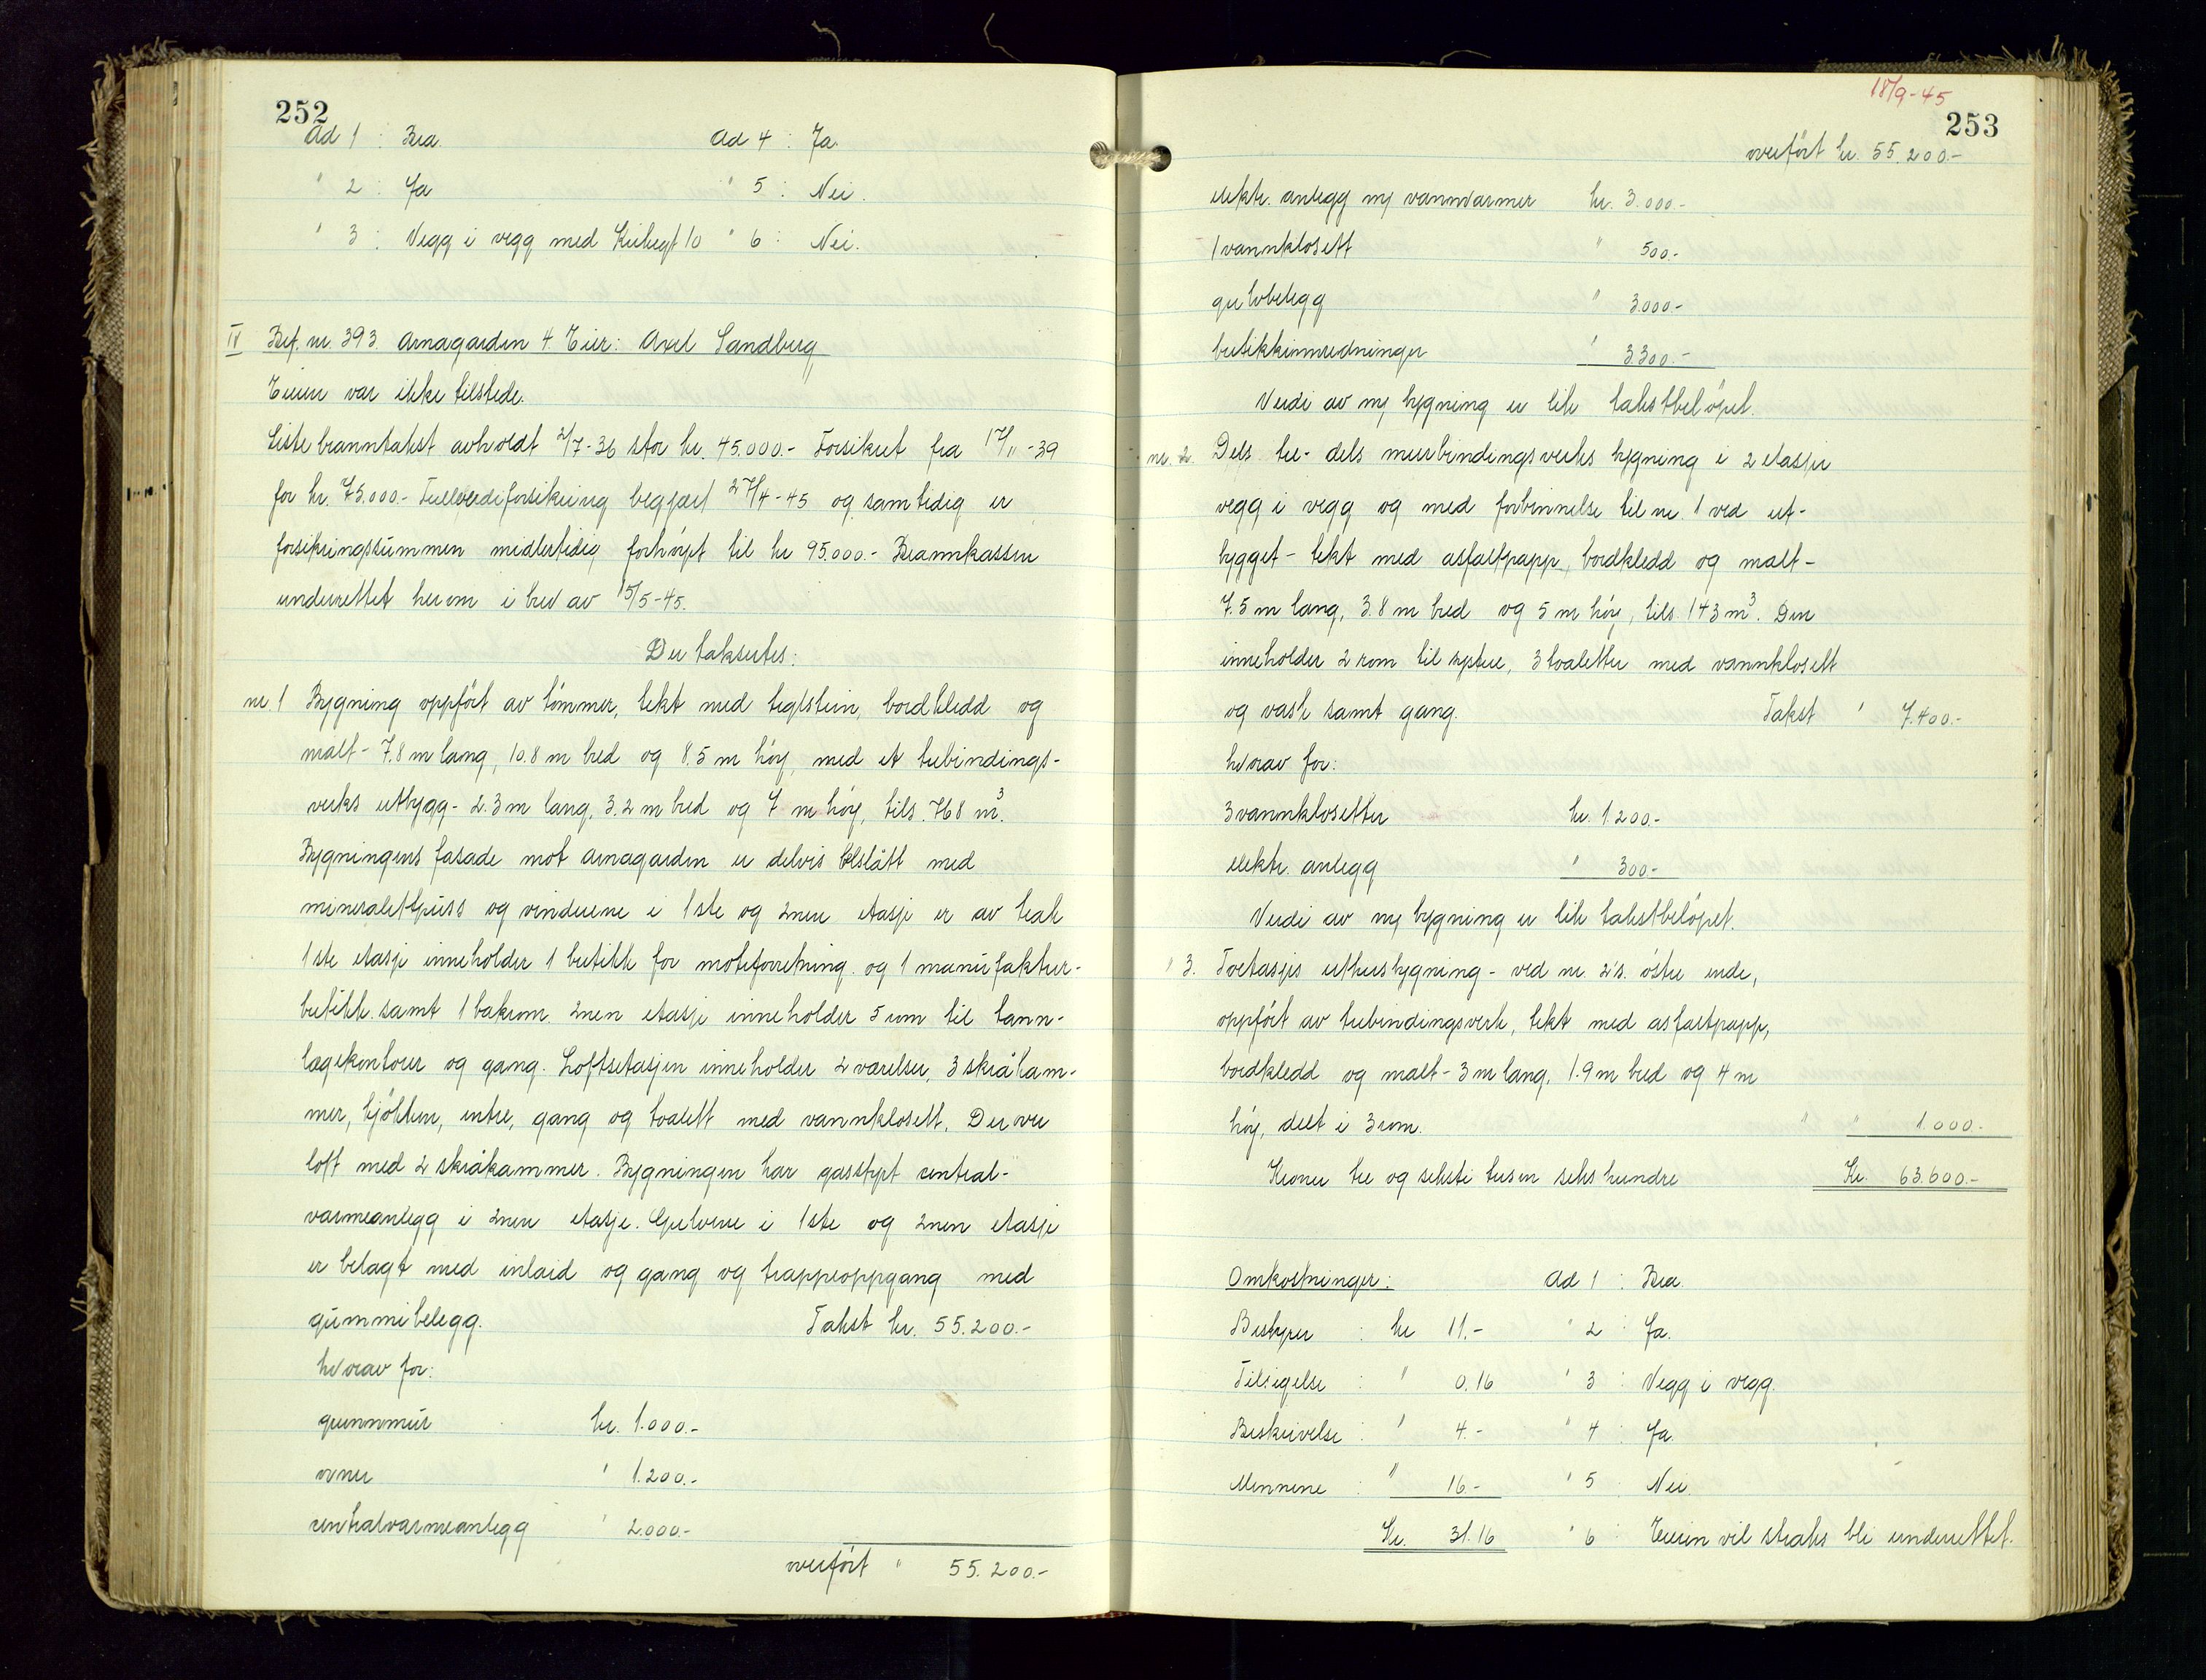 252
Ad 1 : Bra. Ad 4 : Ja.
" 2 : Ja " 5 : Nei.
" 3 : Vegg i vegg med Kirkegt 10 " 6 : Nei.
IV Brf. nr. 393. Arnagarden 4. Eier: Axel Sandberg,
Eieren var ikke tilstede.
Siste branntakst avholdt 2/7-36 stor kr. 45.000.- Forsikret fra 17/11-39
for kr. 75.000.- Fullverdiforsikring begjært 27/4-45 og samtidig er
forsikringssummen midlertidig forhøyet til kr 95.000.- Brannkassen
underrettet herom i brev av 15/5-45.
Der takseres:
nr. 1 Bygning oppført av tømmer, tekt med teglstein, bordkledd og
malt - 7.8 m lang, 10.8 m bred og 8.5 m høy, med et trebindings-
verks utbygg - 2.3 m lang, 3.2 m bred og 7 m høy, tils. 768 m³.
Bygningens fasade mot Arnagarden er delvis slått med
mineralittpuss og vinduene i 1ste og 2nen etasje er av teak
1ste etasje inneholder 1 butikk for moteforretning og 1 manufaktur-
butikk samt 1 bakrom. 2nen etasje inneholder 5 rom til tann-
lægekontorer og gang. Loftsetasjen inneholder 2 værelser, 3 skråkam-
mer, kjøkken, entre, gang og toalett med vannklosett. Derover
loft med 2 skråkammer. Bygningen har gasstyrt central-
varmeanlegg i 2nen etasje. Gulvene i 1ste og 2nen etasje
er belagt med inlaid og gang og trappeoppgang med
gummibelegg. Takst kr. 55.200.-
hvorav for:
grunnmur kr. 1.000.-
ovner " 1.200.-
centralvarmeanlegg " 2.000.-
overført " 55.200.-
18/9-45
253
overført kr. 55.200.-
elektr. anlegg m/ vannvarmer kr. 3.000.-
1 vannklosett " 500.-
gulvbelegg " 3.000.-
butikkinnredninger " 3.300.-
Verdi av ny bygning er lik takstbeløpet.
nr. 2. Dels tre- dels murbindingsverks bygning i 2 etasjer
vegg i vegg og med forbinnelse til nr. 1 ved ut-
bygget - tekt med asfaltpapp, bordkledd og malt -
7.5 m lang, 3.8 m bred og 5 m høy, tils. 143 m³. Den
inneholder 2 rom til systue, 3 toaletter med vannklosett
og vask samt gang. Takst " 7.400.-
hvorav for:
3 vannklosetter kr. 1.200.-
elektr. anlegg " 300.-
Verdi av ny bygning er lik takstbeløpet.
" 3. Toetasjes uthusbygning - ved nr. 2's. østre ende,
oppført av trebindingsverk, tekt med asfaltpapp,
bordkledd og malt - 3 m lang, 1.9 m bred og 4 m
høy, delt i 3 rom. " " 1.000.-
Kroner tre og seksti tusen seks hundre Kr. 63.600.-
Omkostninger: Ad 1 : Bra.
Bestyrer : kr 11.- " 2 : Ja.
Tilsigelse : " 0.16 " 3 : Vegg i vegg.
Beskrivelse : " 4.- " 4 : Ja.
Mennene : " 16.- " 5 : Nei.
Kr. 31.16 " 6 : Eieren vil straks bli underrettet.